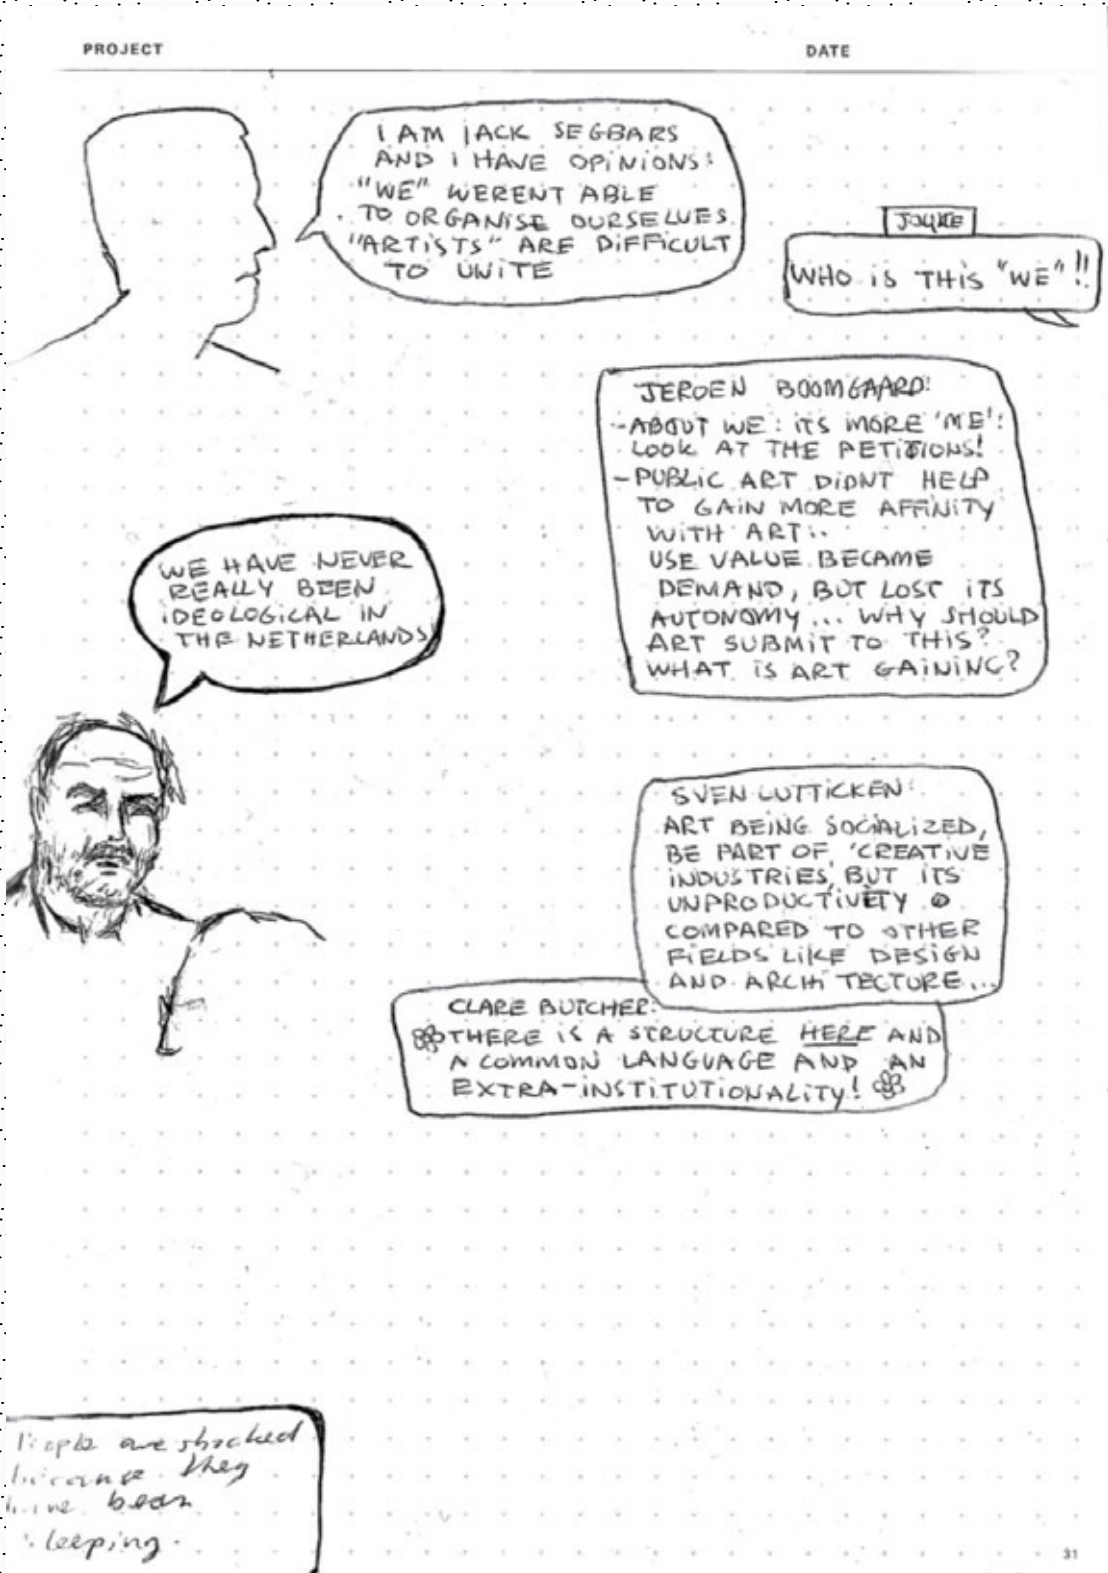 PROJECT
DATE
I AM JACK SEGBARS
AND I HAVE OPINIONS:
"WE" WERENT ABLE
TO ORGANISE OURSELVES.
"ARTISTS" ARE DIFFICULT
TO UNITE
JOUKE
WHO IS THIS "WE"!!
JEROEN BOOMGAARD:
-ABOUT WE: ITS MORE 'ME':
LOOK AT THE PETITIONS!
-PUBLIC ART DIDNT HELP
TO GAIN MORE AFFINITY
WITH ART..
USE VALUE BECAME
DEMAND, BUT LOST ITS
AUTONOMY... WHY SHOULD
ART SUBMIT TO THIS?
WHAT IS ART GAINING?
WE HAVE NEVER
REALLY BEEN
IDEOLOGICAL IN
THE NETHERLANDS
SVEN LUTTICKEN:
ART BEING SOCIALIZED,
BE PART OF 'CREATIVE
INDUSTRIES, BUT ITS
UNPRODUCTIVETY
COMPARED TO OTHER
FIELDS LIKE DESIGN
AND ARCHITECTURE...
CLARE BUTCHER:
THERE IS A STRUCTURE HERE AND
A COMMON LANGUAGE AND AN
EXTRA-INSTITUTIONALITY!
People are shocked
because they
have been
sleeping.
31